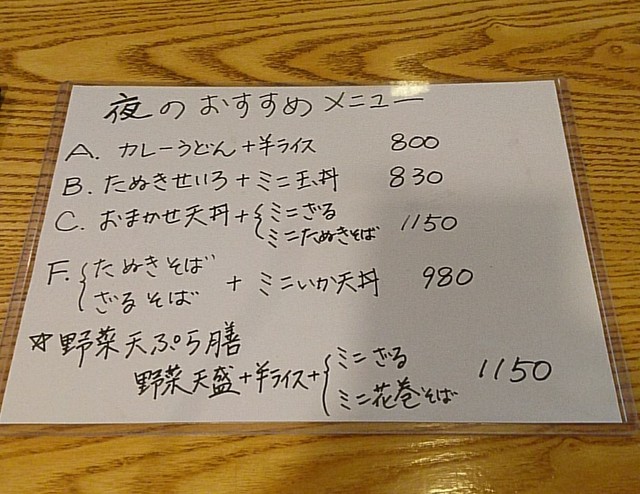 夜のおすすめメニュー
A. カレーうどん+半ライス 800
B. たぬきせいろ+ミニ玉丼 830
C. おまかせ天丼+{ミニざる
ミニたぬきそば 1150
F. {たぬきそば
ざるそば + ミニいか天丼 980
☆野菜天ぷら膳
野菜天盛+半ライス+{ミニざる
ミニ花巻そば 1150